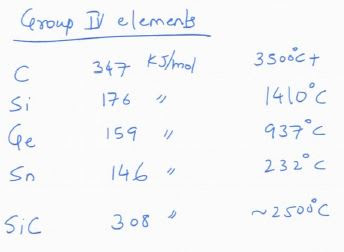 Group IV elements
C 347 KJ/mol 3500°C+
Si 176 " 1410°C
Ge 159 " 937°C
Sn 146 " 232°C
SiC 308 " ~2500°C